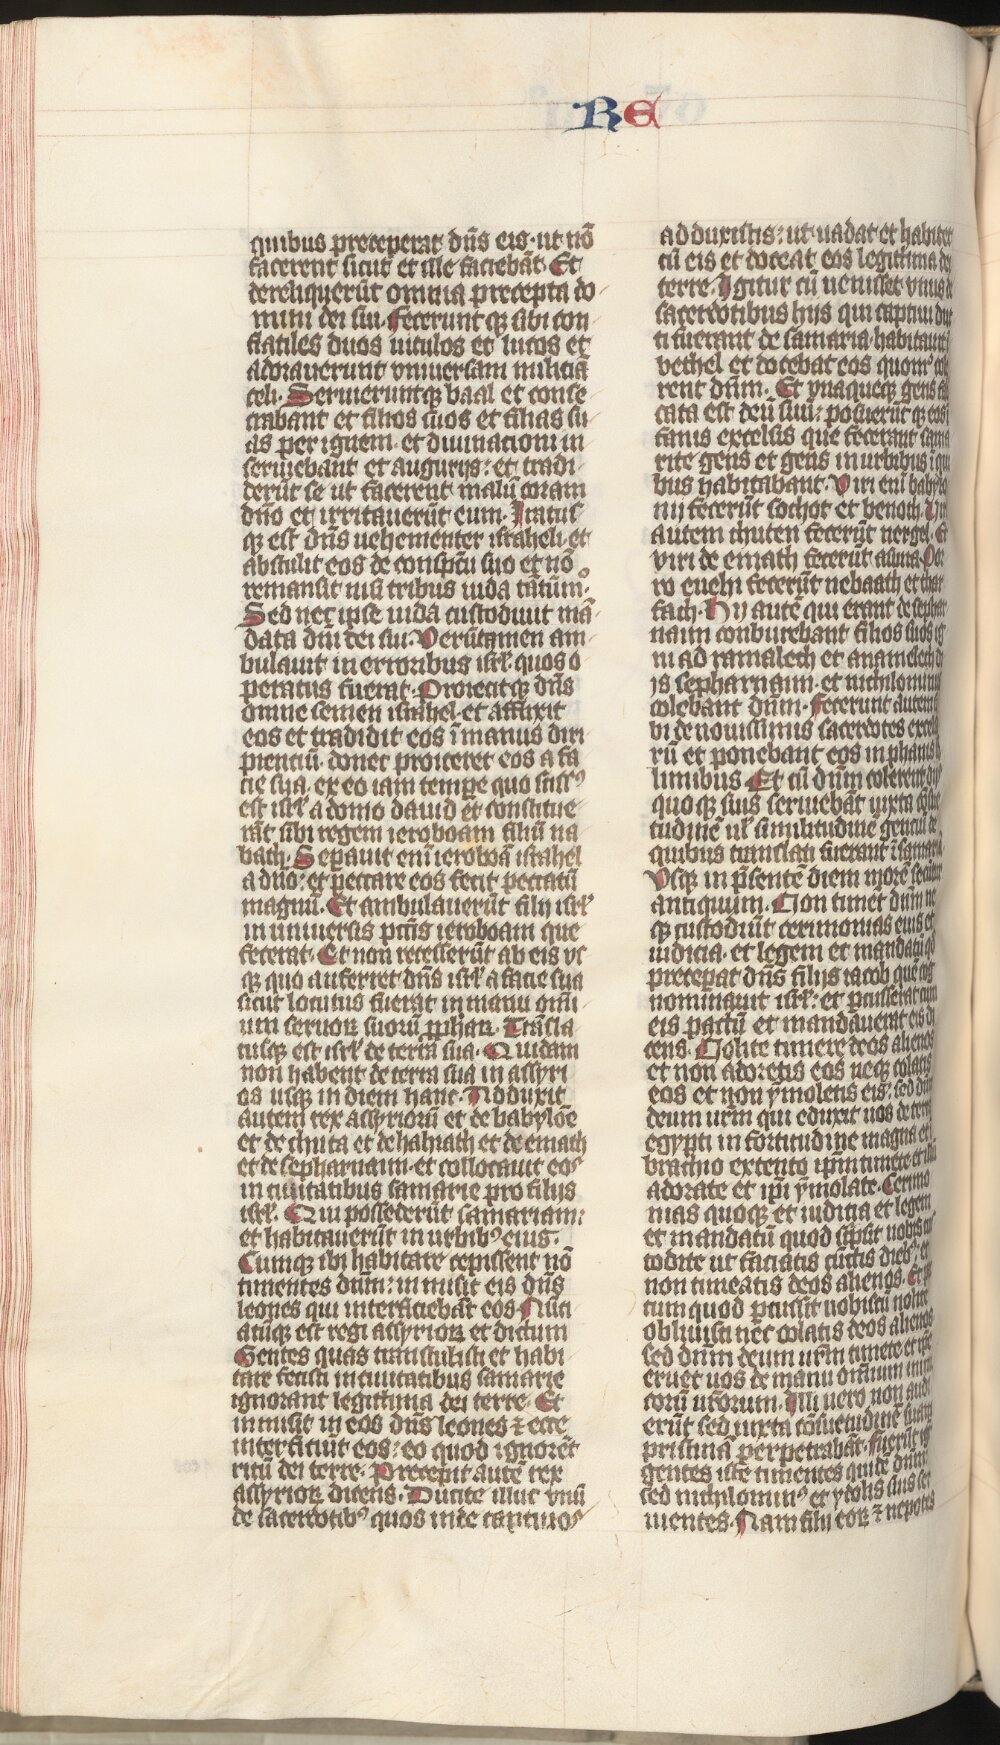 RE
quibus preceperat dn̄s eis · ut nō
facerent sicut et ille faciebāt · Et
dereliquerūt omnia precepta do
mini dei sui · Fecerunt qȝ sibi con
flatiles duos uitulos et lucos et
adorauerunt vniuersam miliciā
celi · Sermeruntqȝ baal et conse
crabant et filios suos et filias su
as per ignem · et diuinationi in
seruiebant et augurijs : et tradi
derūt se ut facerent malū coram
dn̄o et irritauerūt eum · Iratus
qȝ est dn̄s uehementer israheli · et
abstulit eos de conspc̄tu suo et nō
remansit nisi tribus iuda tātum ·
Sed nec ipse iuda custodiuit mā
data dn̄i dei sui · Verūtamen am
bulauit in erroribus isrl̄ · quos o
peratus fuerat · Proiecitqȝ dn̄s
omne semen israhel · et afflixit
eos et tradidit eos ī manus diri
pientiū · donec proiceret eos a fa
cie sua · ex eo iam tempore quo sciss⁹
est isrl̄ a domo dauid et constitue
rāt sibi regem ieroboam filiū na
bath · Separauit enī ieroboā israhel
a dn̄o : et peccare eos fecit peccatū
magnū · Et ambulauerūt filij isrl̄
in uniuersis pctīs ieroboam que
fecerat · Et non recesserūt ab eis vs
qȝ quo auferret dn̄s isrl̄ a facie sua
sicut locutus fuerat in manu omī
um seruoꝝ suorū ꝓphaꝝ · Trāsla
tusqȝ est isrl̄ de terra sua · Quidam
non habent de terra sua in assyri
os usqȝ in diem hanc · Adduxit
autem rex assyriorū et de babylōe
et de chuta et de hahiath et de emath
et de sepharuaim · et collocauit eos
in ciuitatibus samarie pro filijs
isrl̄ · Qui possederūt samariam :
et habitauerūt in urbib⁹ eius ·
Cumqȝ ibi habitare cepissent nō
timentes dn̄m : in misit eis dn̄s
leones qui interficiebāt eos · Nūci
atūqȝ est regi assyrioꝝ et dictum
Gentes quas transtulisti et habi
tare fecisti in ciuitatibus samarie
ignorant legittima dei terre · Et
inmisit in eos dn̄s leones ⁊ ecce
interficiūt eos : eo quod ignorēt
ritū dei terre · Precepit autē rex
assyrioꝝ dicens · Ducite illuc vnū
de sacerdotib⁹ quos inde captiuos
adduxistis : ut uadat et habitet
cū eis et doceat eos legittima dei
terre · Igitur cū uenisset vnus de
sacerdotibus hijs qui captiui duc
ti fuerant de samaria · habitauit
bethel et docebat eos quom̄o cole
rent dn̄m · Et vnaqueqȝ gens
cata est deū suū : posuerūt qȝ eos ī
fanis excelsis que fecerant sama
rite gens et gens in urbibus ī qui
bus habitabant · Viri enī babylo
nij fecerūt sochot et benoth · Viri
autem chuten fecerūt nergel · Et
viri de emath fecerūt asima · Por
ro euehi fecerūt nebaath et thar
tach · Hij autē qui erant de sephar
naim conburebant filios suos ig
ni ad ramalech et anamelech di
is sepharnaim · et nichilominus
colebant dn̄m · Fecerunt autem
bi de nouissimis sacerdotes excelso
rū et ponebant eos in phanis
limibus · Et cū dn̄m colerent dijs
quoqȝ suis seruiebāt iuxta cōsue
tudinē ul̄ similitudinē gentiū de
quibus translati fuerant ī samariā
Vsqȝ in p̄sentē diem morē secūtur
antiquum · Non timēt dn̄m ne
qȝ custodiūt cerimonias eius et
iudicia · et legem et mandatū qd̄
preceperat dn̄s filijs iacob quē cog
nominauit isrl̄ : et pcusserat cum
eis pactū et mandauerat eis di
cens · Nolite timere deos alienos
et non adoretis eos neqȝ colatis
eos et non ymoletis eis : sed dn̄m
deum urm̄ qui eduxit uos de terra
egypti in fortitudine magna et
brachio extento ip̄m timete et illū
adorate et ip̄i ymolate · Cerimo
nias quoqȝ et iudicia et legem
et mandatū quod sc̄psit uobis cus
todite ut faciatis cūctis dieb⁹ : et
non timeatis deos alienos · Et pac
tum quod pcussit uobiscū nolite
obliuisci nec colatis deos alienos
sed dn̄m deum urm̄ timete et ip̄e
eruet uos de manu omnium inimi
corū ur̄orum · Illi uero non audi
erūt sed iuxta cōsuetudinē suam
pristinā perpetrabāt · Fuerūt igr̄
gentes iste timentes quidē dn̄m
sed nichilomin⁹ et ydolis suis ser
uientes · Nam filij eoꝝ ⁊ nepotes